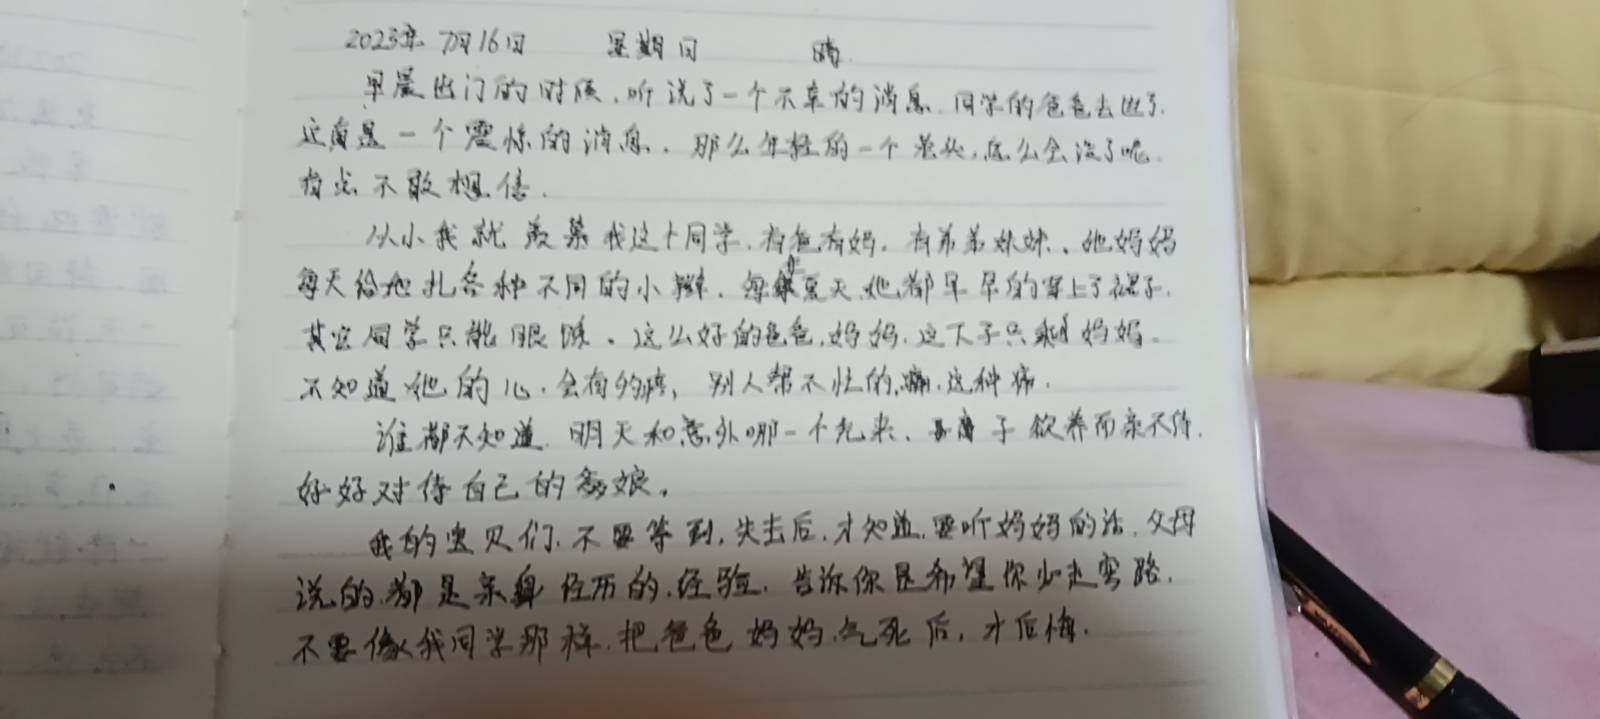 2023年 7月16日 星期日 晴
早晨出门的时候,听说了一个不幸的消息.同学的爸爸去逝了.
这真是一个震惊的消息.那么年轻的一个老头,怎么会没了呢.
有点不敢想信.
从小我就羡慕我这个同学.有爸有妈.有弟弟妹妹、她妈妈
每天给她扎各种不同的小辫.每年夏天,她都早早的穿上了裙子.
其它同学只能眼馋。这么好的爸爸,妈妈.这下子只剩妈妈。
不知道她的心.会有多疼,别人帮不忙的,痛.这种痛.
谁都不知道.明天和意外哪一个先来、子欲养而亲不待.
好好对待自己的爹娘。
我的宝贝们.不要等到,失去后,才知道.要听妈妈的话.父母
说的.都是亲身经历的.经验.告诉你是希望你少走弯路.
不要像我同学那样.把爸爸妈妈.气死后,才后悔.